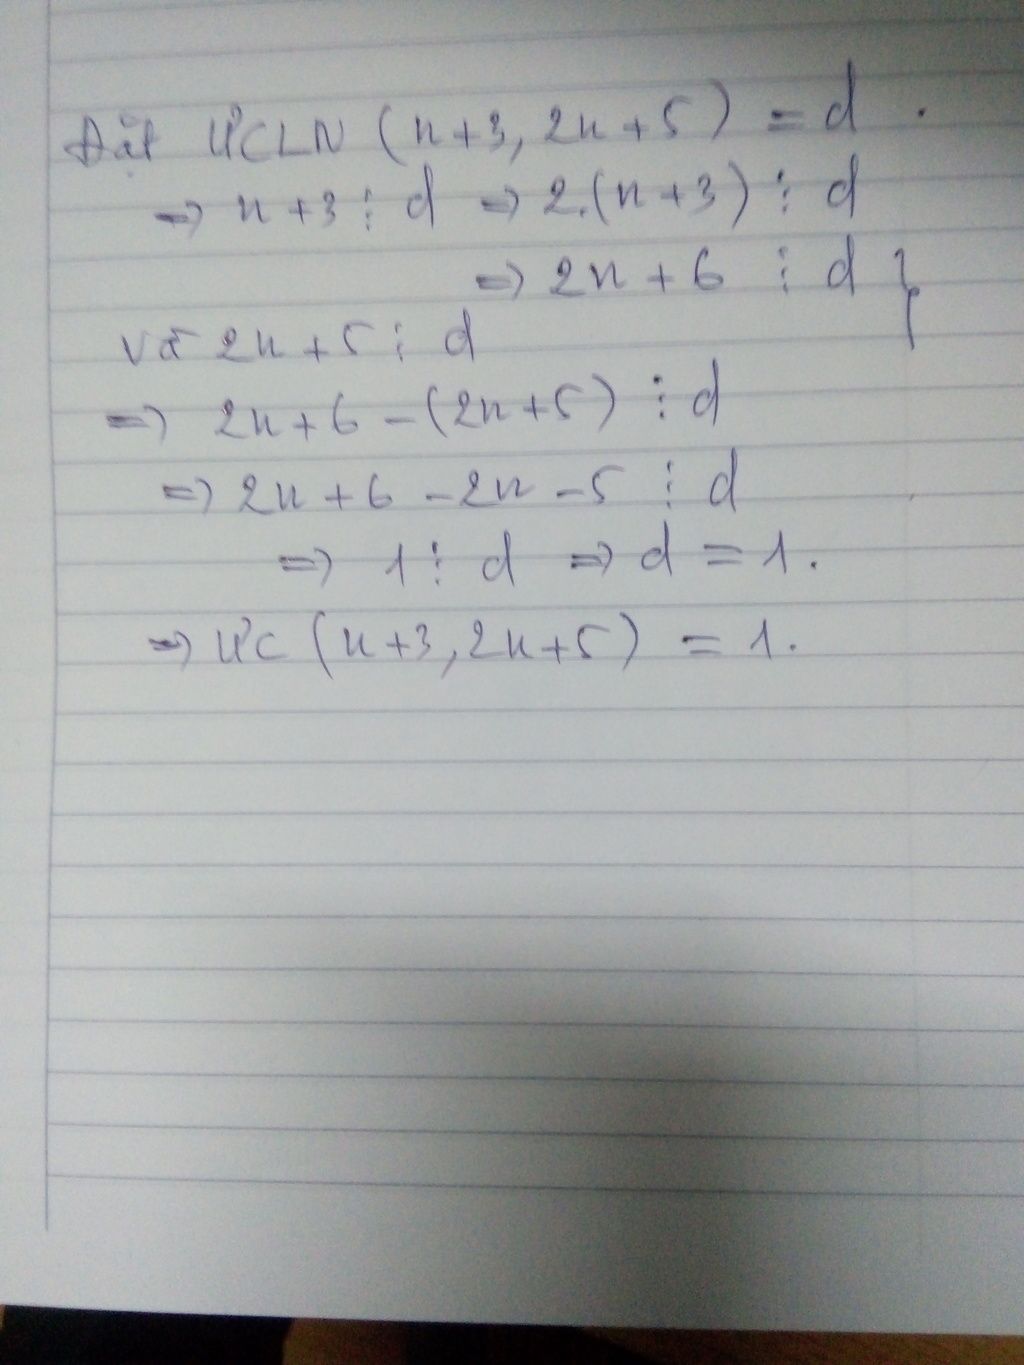 Đặt ƯCLN (n+3, 2n+5) = d.
=> n+3 ⋮ d => 2.(n+3) ⋮ d
=> 2n+6 ⋮ d }
và 2n+5 ⋮ d
=> 2n+6-(2n+5) ⋮ d
=> 2n+6-2n-5 ⋮ d
=> 1 ⋮ d => d = 1.
=> ƯC (n+3, 2n+5) = 1.